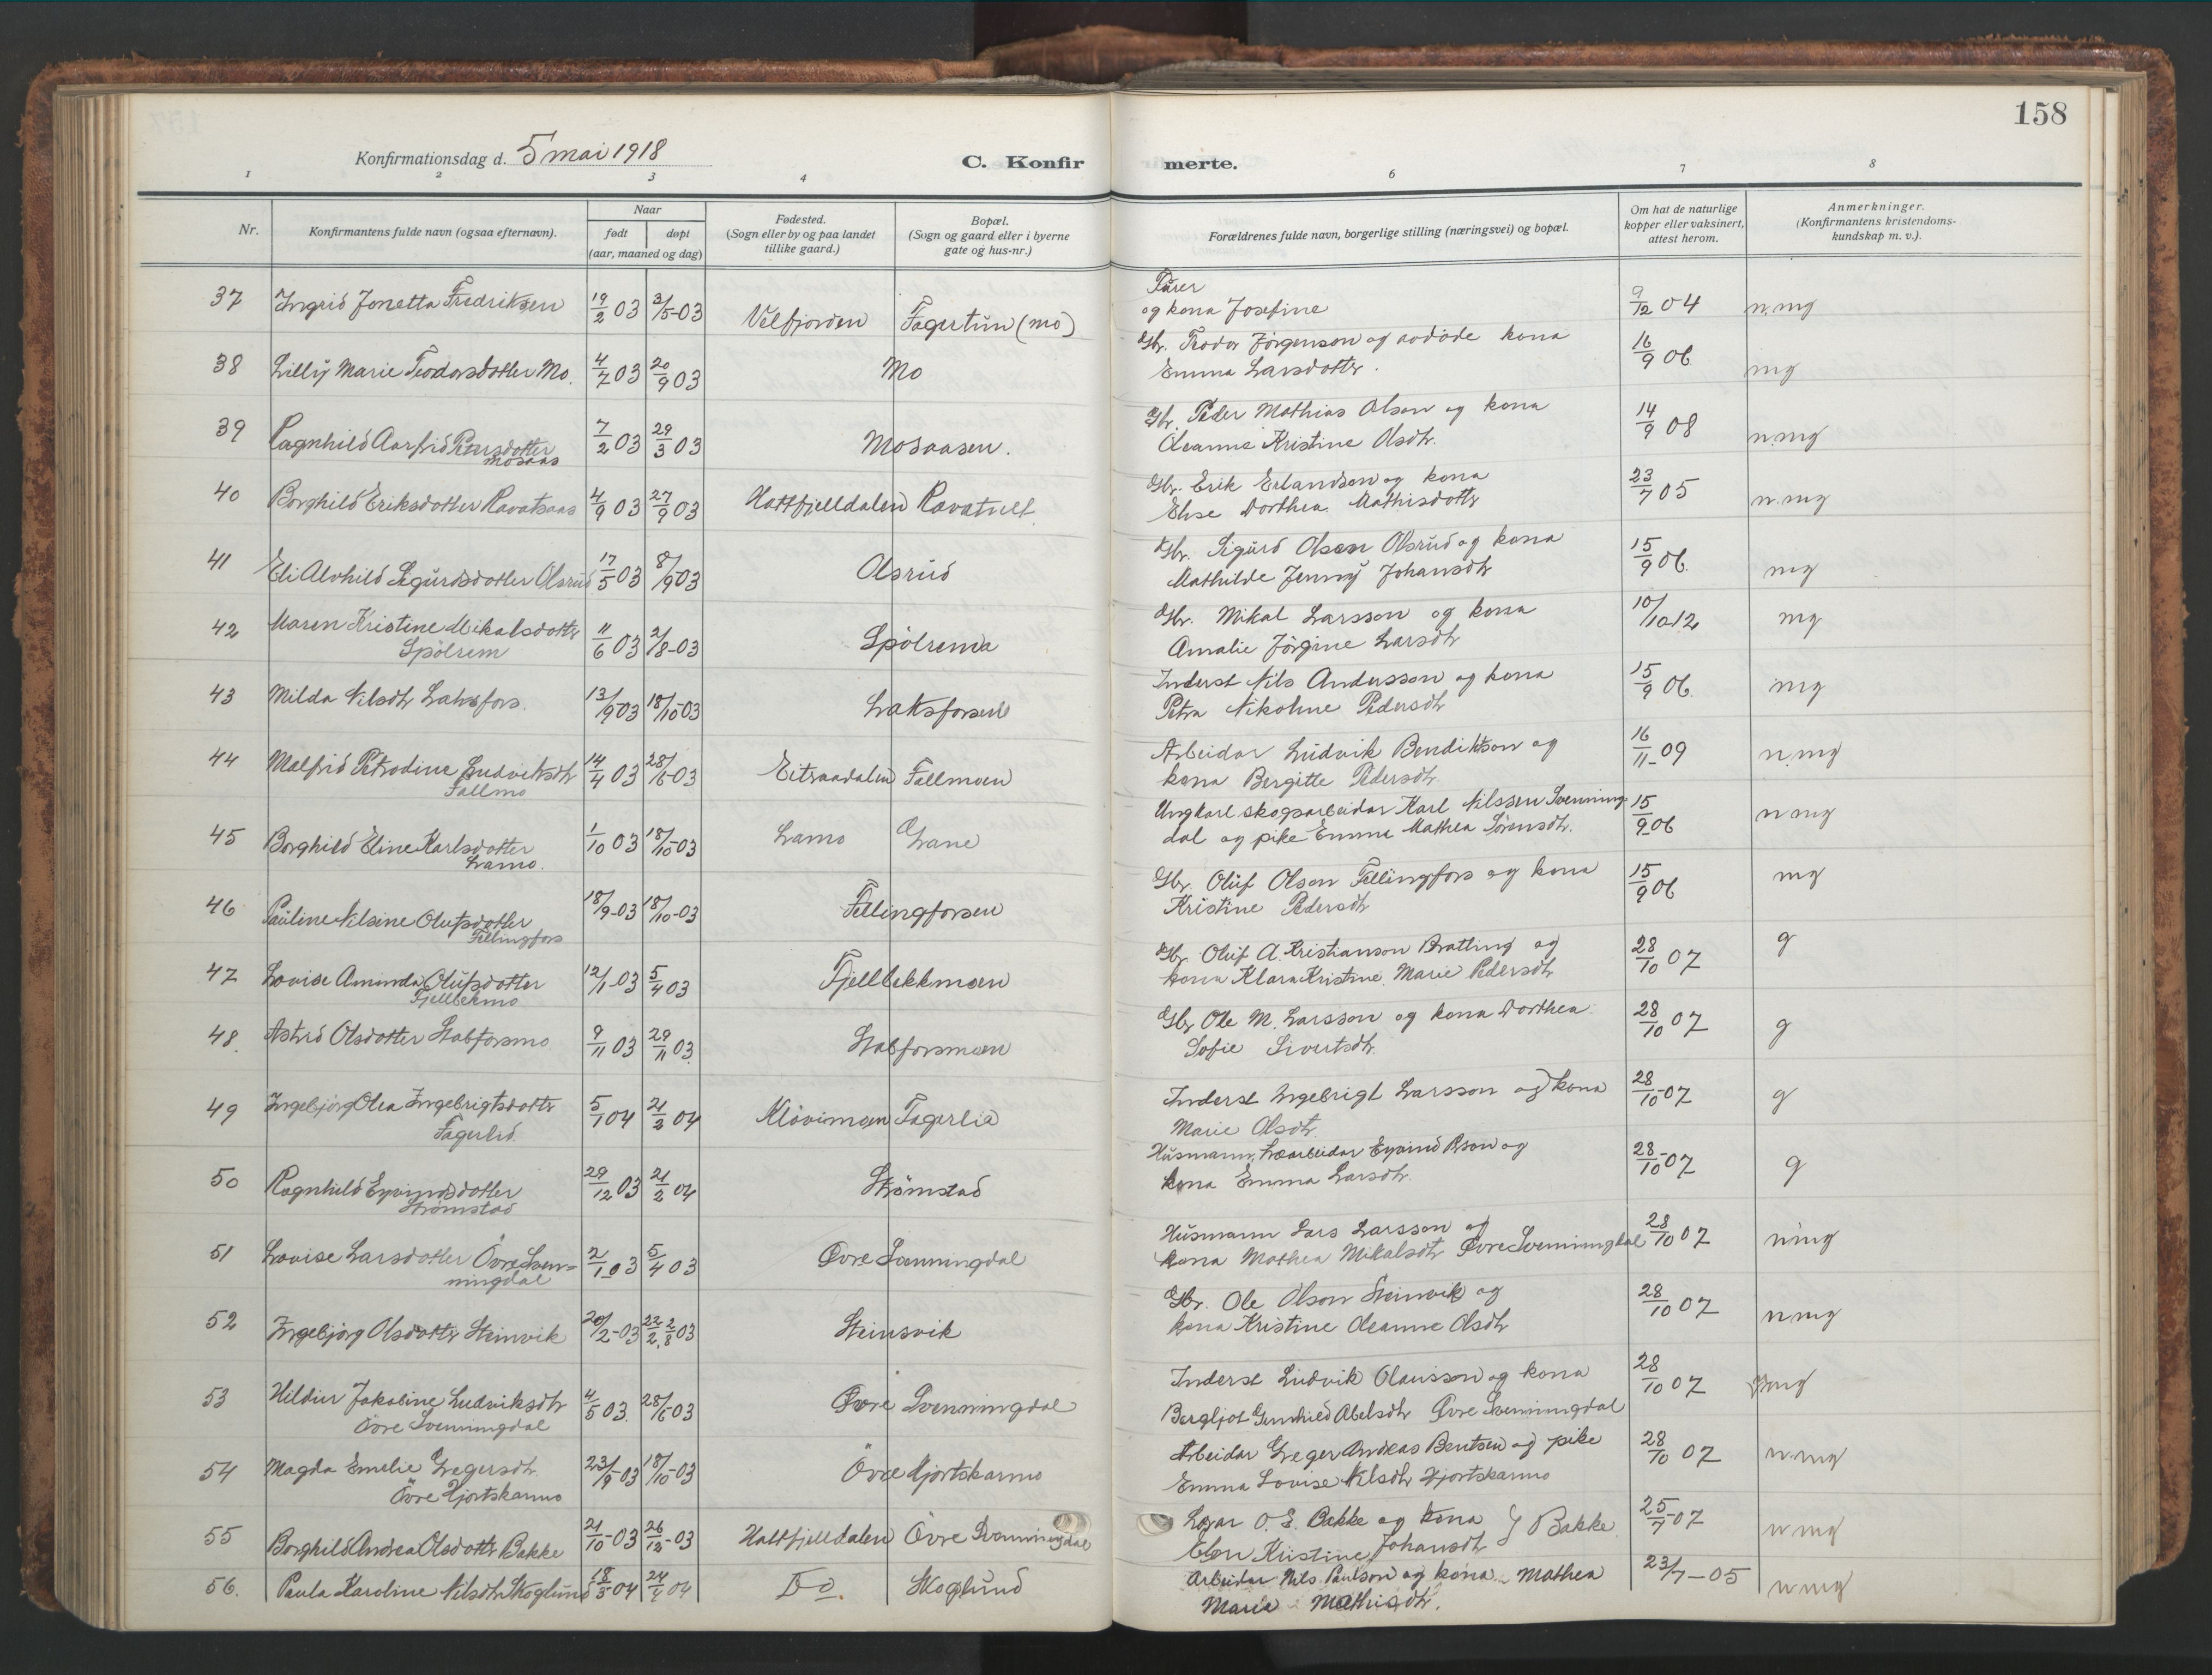 158
Konfirmationsdag d. 5 mai 1918
C. Konfir
merte.
1 2 3 4 6 7 8
Nr.
Konfirmantens fulde navn (ogsaa efternavn).
Naar
født døpt
(aar, maaned og dag)
Fødested.
(Sogn eller by og paa landet
tillike gaard.)
Bopæl.
(Sogn og gaard eller i byerne
gate og hus-nr.)
Forældrenes fulde navn, borgerlige stilling (næringsvei) og bopæl.
Om hat de naturlige
kopper eller vaksinert,
attest herom.
Anmerkninger.
(Konfirmantens kristendoms-
kundskap m. v.).
37 Ingrid Jonetta Fredriksen 19/2 03 3/5-03 Velfjorden Fagertun (mo)
og kona Josefine 9/12 04 n.mg
38 Lilly Marie Teodorsdotter Mo. 4/7 03 20/9 03 Mo
Gbr. Teodor Jørgenson og avdøde kona 16/9 06
Emma Larsdotter. mg
39 Ragnhild Aarfrid Pedersdotter 7/2 03 29/3 03 Mosaasen.
Mosaas
Gbr. Peder Mathias Olson og kona 14/9 08
Oleanne Kristine Olsdtr. n.mg
40 Borghild Eriksdotter Ravatsaas 4/9 03 27/9 03 Hattfjelldalen Ravatuelt
Gbr. Erik Erlandson og kona 23/7 05
Elise Dorthea Mathisdottr n.mg
41 Eli Alvhild Sigurdsdotter Olsrud 17/5 03 8/9 03 Olsrud
Gbr. Sigurd Olson Olsrud og kona 15/9 06.
Mathilde Jenny Johansdtr mg
42 Maren Kristine Mikalsdottr 11/6 03 2/8-03 Spølrema
Spølrem
Gbr. Mikal Larsson og kona 10/10 12
Amalie Jørgine Larsdtr mg
43 Milda Nilsdtr Laksfors. 13/9 03 18/10-03 Laksforsen
Inderst Nils Andersson og kona 15/9 06.
Petra Nikoline Pedersdtr mg
44 Malfrid Petrodine Ludviksdtr 14/4 03 28/6-03 Eitraadalen Fallmoen
Fallmo
Arbeidar Ludvik Bendiktson og 16/11-09
kona Bergitte Pedersdtr n.mg
45 Borghild Eline Karlsdotter 1/10 03 18/10-03 Lamo Grane
Lamo.
Ungkarl skogsarbeidar Karl Nilssen Svenning 15/9 06
dal og pike Emma Mathea Sørensdtr. n mg
46 Pauline Nilsine Olufsdotter 18/9-03 18/10-03 Fellingforsen
Fellingfors
Gbr. Oluf Olson Fellingfors og kona 15/9 06 mg
Kristine Pedersdtr
47 Lovise Aminda Olufsdotter 12/1-03 5/4 03 Fjellbekkmoen
Fjellbekmo
Gbr. Oluf A. Kristianson Bratting og 28/10 07 g
kona Klara Kristine Marie Pedersdtr
48. Astrid Olsdotter Stabforsmo 9/11 03 29/11 03. Stabforsmoen
Gbr Ole M. Larsson og kona Dorthea 28/10 07 g
Sofie Sivertsdtr.
49 Ingebjørg Olea Ingebrigtsdottr 5/1 04 21/2 04 Kløvimoen Fagerlia
Fagerlid.
Inderst Ingebrigt Larsson og kona 28/10-07 g
Marie Olsdtr
50 Ragnhild Eyvindsdotter 29/12 03 21/2 04 Strømstad
Strømstad
kona Emma Larsdtr. 28/10-07 g
51 Lovise Larsdotter Övre Sven= 2/1 03 5/4 03 Övre Svenningdal
ningdal
Husmann Lars Larsson og 28/10 07
kona Mathea Mikalsdtr Övre Svenningdal n mg
52 Ingebjørg Olsdottr Steinvik 20/2-03 22/2, 2/8 03 Steinsvik
Gbr. Ole Olson Steinvik og 28/10 07
kona Kristine Oleanne Olsdtr n mg
53 Hildur Jakobine Ludviksdtr 4/5 03. 28/6-03 Øvre Svenningdal
Övre Svenningdal
Inderst Ludvik Olausson og kona 28/10 07 mg
Bergljot Gunhild Abelsdtr Övre Svenningdal
54 Magda Emelie Gregersdtr. 23/9-03 18/10-03 Övre Hjortskarmo
Övre Hjortskarmo
Arbeidar Greger Andreas Bentsen og pike 28/10 07 n mg
Emma Lovise Nilsdtr Hjortskarmo
55 Borghild Andrea Olsdottr Bakke 21/10-03 26/12-03 Hattfjelldalen Övre Svenningdal
O. E. Bakke og kona Bakke 25/7-07
Kristine Johansdtr n mg
56. Paula Karoline Nilsdtr Skoglund 18/3 04 Do. Skoglund
Arbeidar Nils Paulson og kona Mathea 23/7-05
Maria Mathisdtr. n mg